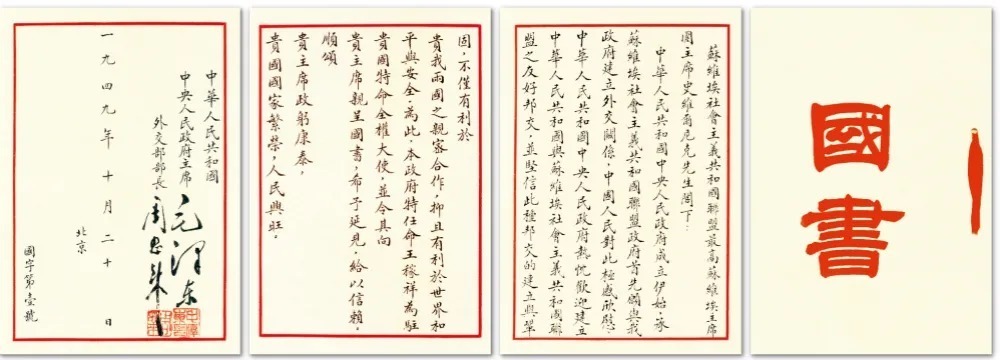 國書
蘇維埃社會主義共和國聯盟最高蘇維埃主席
團主席史維爾尼克先生閣下：
中華人民共和國中央人民政府成立伊始，承
蘇維埃社會主義共和國聯盟政府首先願與我
政府建立外交關係，中國人民對此極感欣慰。
中華人民共和國中央人民政府熱忱歡迎建立
中華人民共和國與蘇維埃社會主義共和國聯
盟之友好邦交，並堅信此種邦交的建立與鞏
固，不僅有利於
貴我兩國之親密合作，抑且有利於世界和
平與安全。為此，本政府特任命王稼祥為駐
貴國特命全權大使，並令其向
貴主席親呈國書，希予延見，給以信賴。
順頌
貴主席政躬康泰，
貴國國家繁榮，人民興旺。
中華人民共和國
中央人民政府主席 毛澤东
外交部部長 周恩来
一九四九年十月二十日
北京
國字第壹號